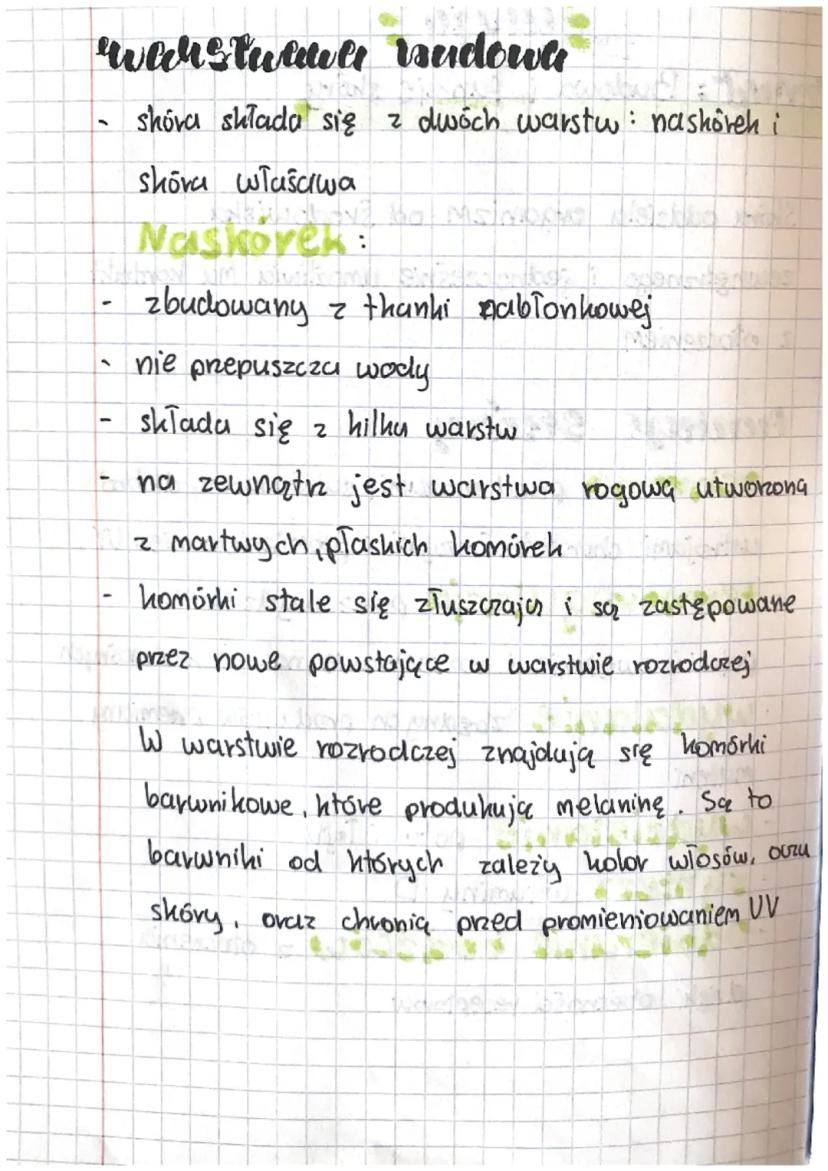 warstwowa budowa
- skóra składa się z dwóch warstw: naskórek i
skóra właściwa
Naskórek:
- zbudowany z tkanki nabłonkowej
- nie przepuszcza wody
- składa się z kilku warstw
- na zewnątrz jest warstwa rogową utworzona
z martwych, płaskich komórek
- komórki stale się złuszczają i są zastępowane
przez nowe powstające w warstwie rozrodczej
W warstwie rozrodczej znajdują się komórki
barwnikowe, które produkują melaninę. Są to
barwniki od których zależy kolor włosów, oczu
skóry, oraz chronią przed promieniowaniem UV